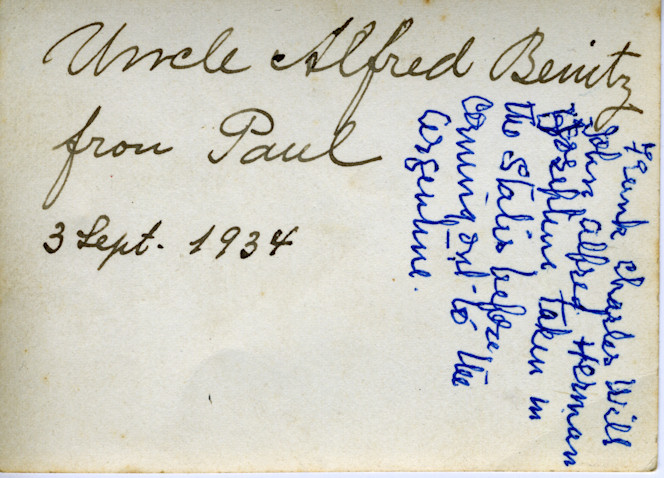 Uncle Alfred Benitz
from Paul
3 Sept. 1934
Frank Charles Will
John Alfred Herman
Josephine taken in
the States before
Comming out to the
Argentine.